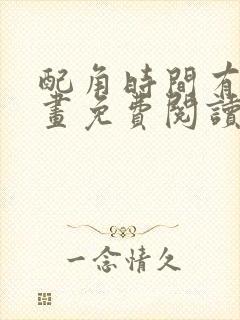 配角時間有
畫免費閱讀
一念情久